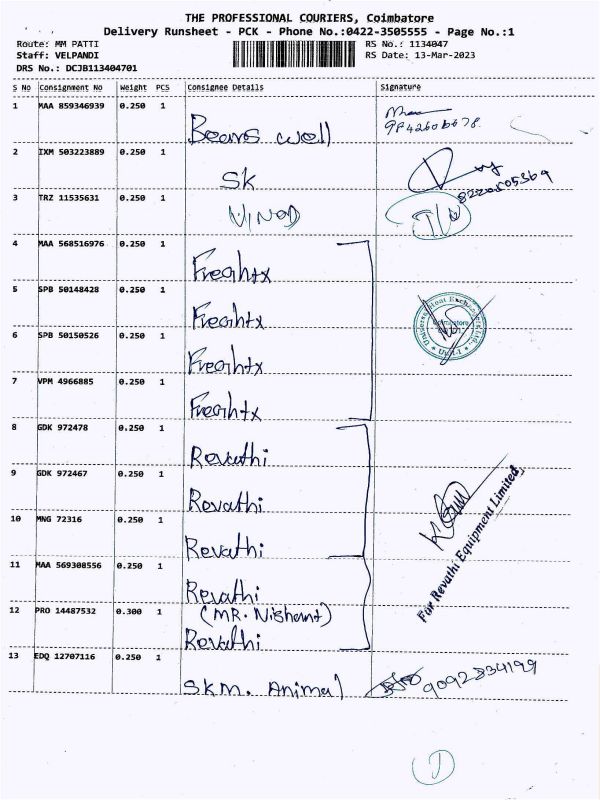 THE PROFESSIONAL COURIERS, Coimbatore
Delivery Runsheet - PCK - Phone No.:0422-3505555 - Page No.:1
Route: MM PATTI RS No.: 1134047
Staff: VELPANDI RS Date: 13-Mar-2023
DRS No.: DCJB113404701
S No Consignment No Weight PCS Consignee Details Signature
1 MAA 859346939 0.250 1
Beams well
2 IXM 503223889 0.250 1
SK
8220505369
3 TRZ 11535631 0.250 1
VINOD
4 MAA 568516976 0.250 1
Freahtx
5 SPB 50148428 0.250 1
Freahtx
6 SPB 50150526 0.250 1
Freahtx
7 VPM 4966885 0.250 1
Freahtx
8 GDK 972478 0.250 1
Revathi
9 GDK 972467 0.250 1
Revathi
10 MNG 72316 0.250 1
Revathi
For Revathi Equipment Limited
11 MAA 569308556 0.250 1
Revathi
(MR. Nishant)
12 PRO 14487532 0.300 1
Revathi
13 EDQ 12707116 0.250 1
SKM. Animal
9092834199